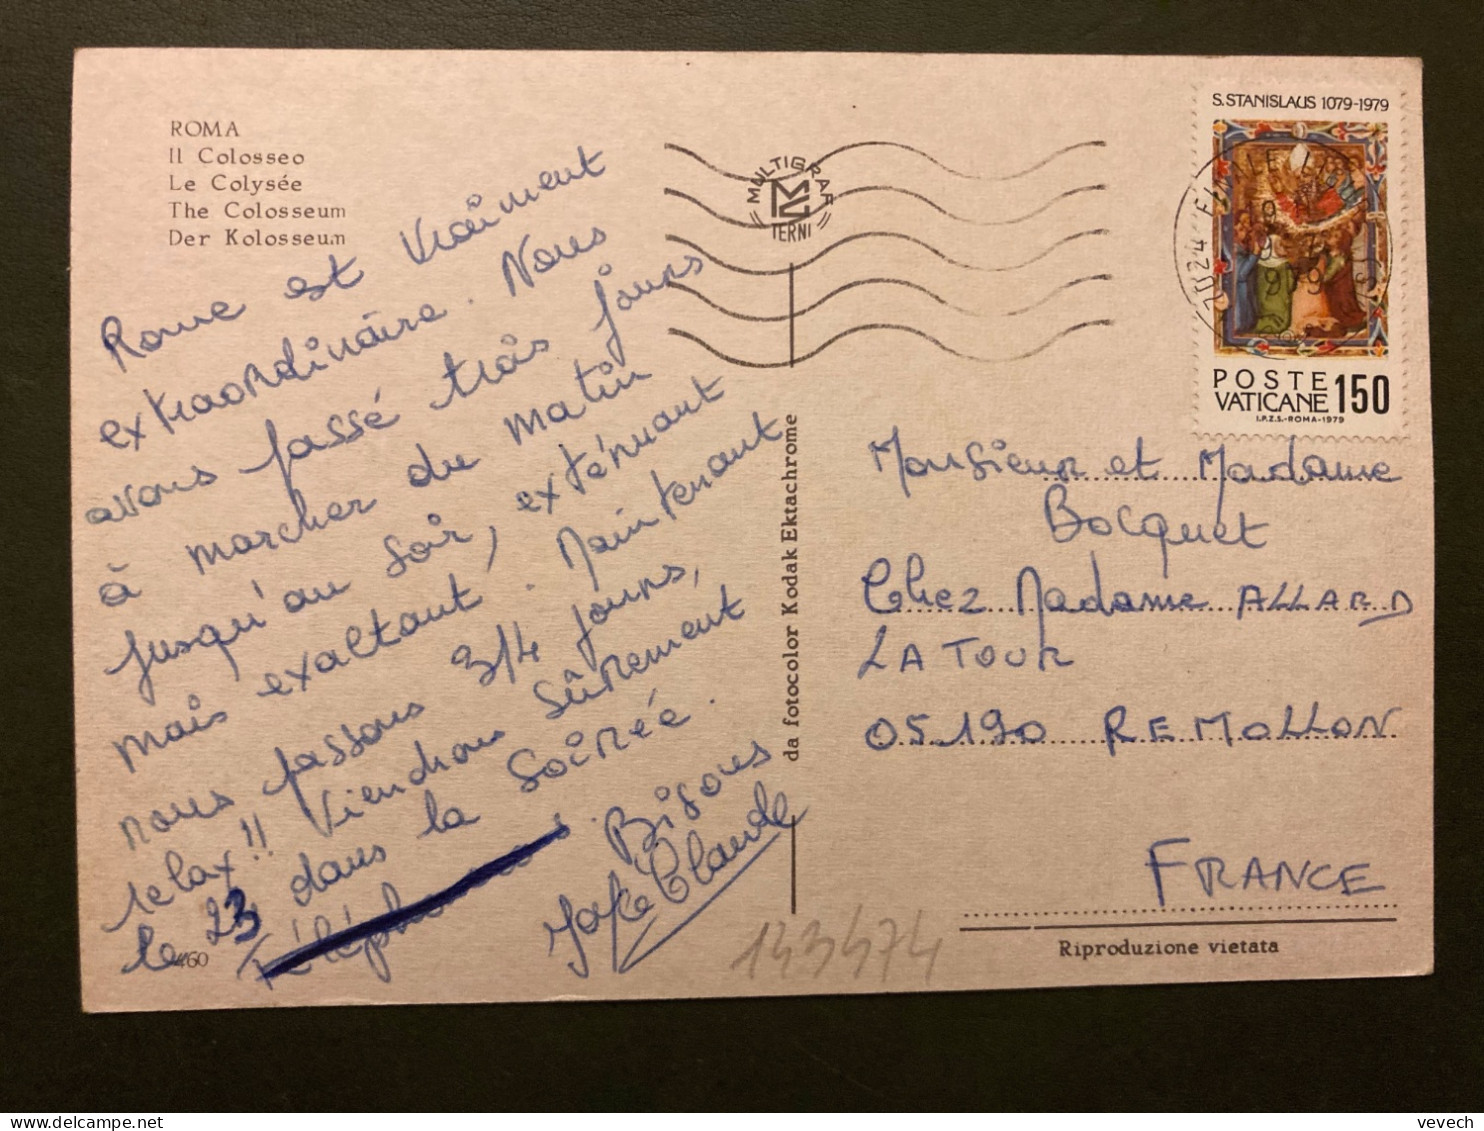 ROMA
Il Colosseo
Le Colysée
The Colosseum
Der Kolosseum
MULTIGRAF
TERNI
S.STANISLAUS 1079-1979
POSTE
VATICANE 150
I.P.Z.S.-ROMA-1979
Rome est vraiment
extraordinaire. Nous
avons passé trois jours
à marcher du matin
jusqu'au soir, exténuant
mais exaltant. Maintenant
nous passons 3/4 jours,
relax!! Viendrons sûrement
le 23 dans la soirée.
Bisous
Claude
460
da fotocolor Kodak Ektachrome
Monsieur et Madame
Bocquet
Chez Madame ALLARD
LA TOUR
05190 REMOLLON
FRANCE
Riproduzione vietata
143474
vevech